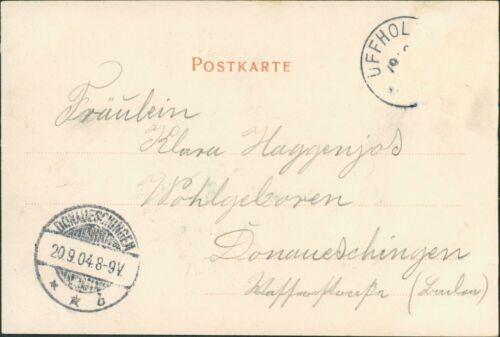 POSTKARTE
UFFHOL
19
Fräulein
Klara Haggenjos
Wohlgeboren
Donaueschingen
(Baden)
DONAUESCHINGEN
20.9.04.8-9V.
* * b